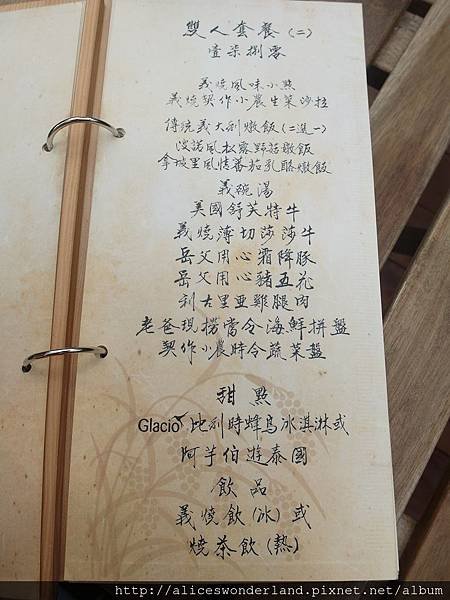 雙人套餐(二)
壹柒捌零
義燒風味小點
義燒契作小農生菜沙拉
傳統義大利燉飯(二選一)
波諾風松露野菇燉飯
拿坡里風情番茄乳酪燉飯
義碗湯
美國舒芙特牛
義燒薄切莎莎牛
岳父用心霜降豚
岳父用心豬五花
利古里亞雞腿肉
老爸現撈當令海鮮拼盤
契作小農時令蔬菜盤
甜點
Glacio 比利時蜂鳥冰淇淋或
阿芋伯遊泰國
飲品
義燒飲(冰)或
燒茶飲(熱)
http://aliceswonderland.pixnet.net/album